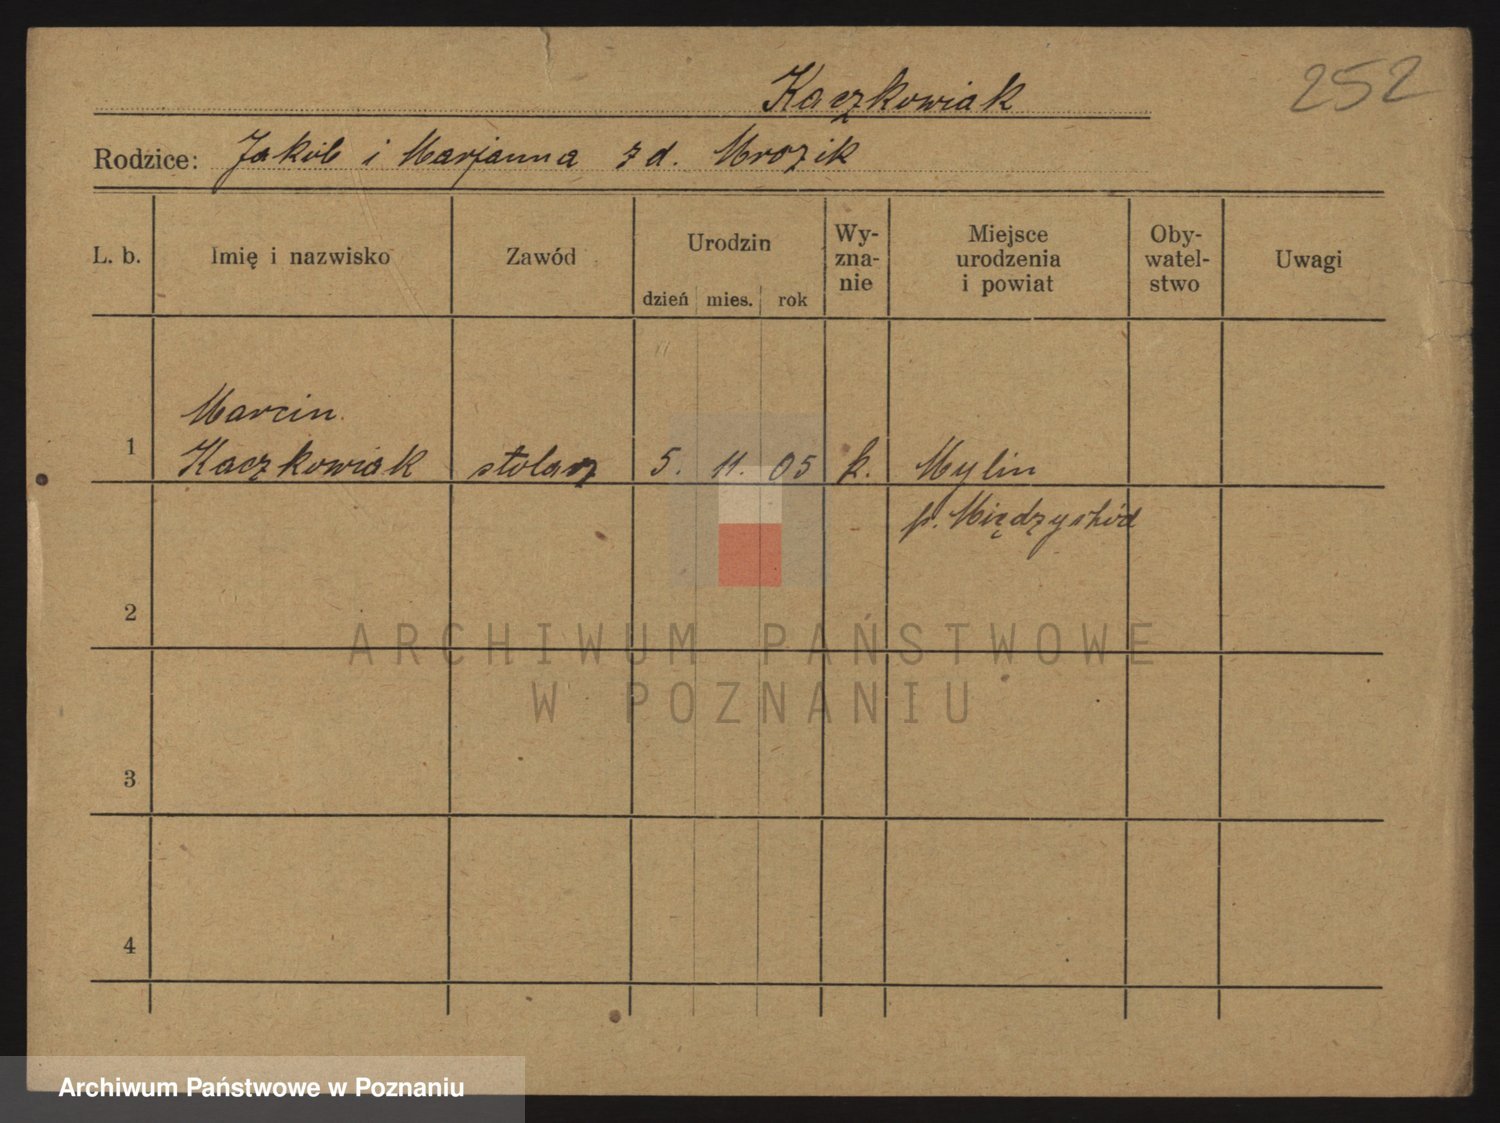 Kaczkowiak
252
Rodzice: Jakób i Marjanna z d. Mrozik
L. b.
Imię i nazwisko
Zawód
Urodzin
dzień mies. rok
Wy-
zna-
nie
Miejsce
urodzenia
i powiat
Oby-
watel-
stwo
Uwagi
Marcin
1 Kaczkowiak stolarz 5. 11. 05 k. Mylin
p. Międzychód
2
3
4
ARCHIWUM PAŃSTWOWE
W POZNANIU
Archiwum Państwowe w Poznaniu